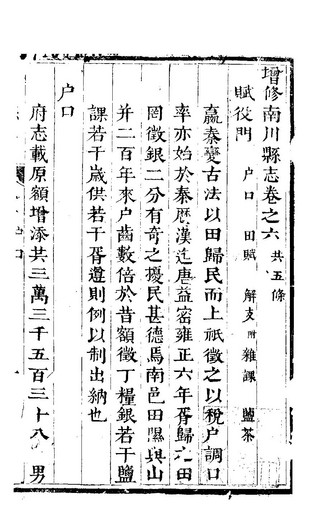 增修南川縣志卷之六 共五條
賦役門 戶口 田賦 解支附 雜課 鹽茶
嬴秦變古法以田歸民而上祇徵之以稅戶調口
率亦始於秦歷漢迄唐益密雍正六年胥歸之田
罔徵銀二分有奇之擾民甚德焉南邑田隰與山
并二百年來戶齒數倍於昔額徵丁糧銀若干鹽
課若干歲供若干胥遵則例以制出納也
戶口
府志載原額增添共三萬三千五百三十八 男